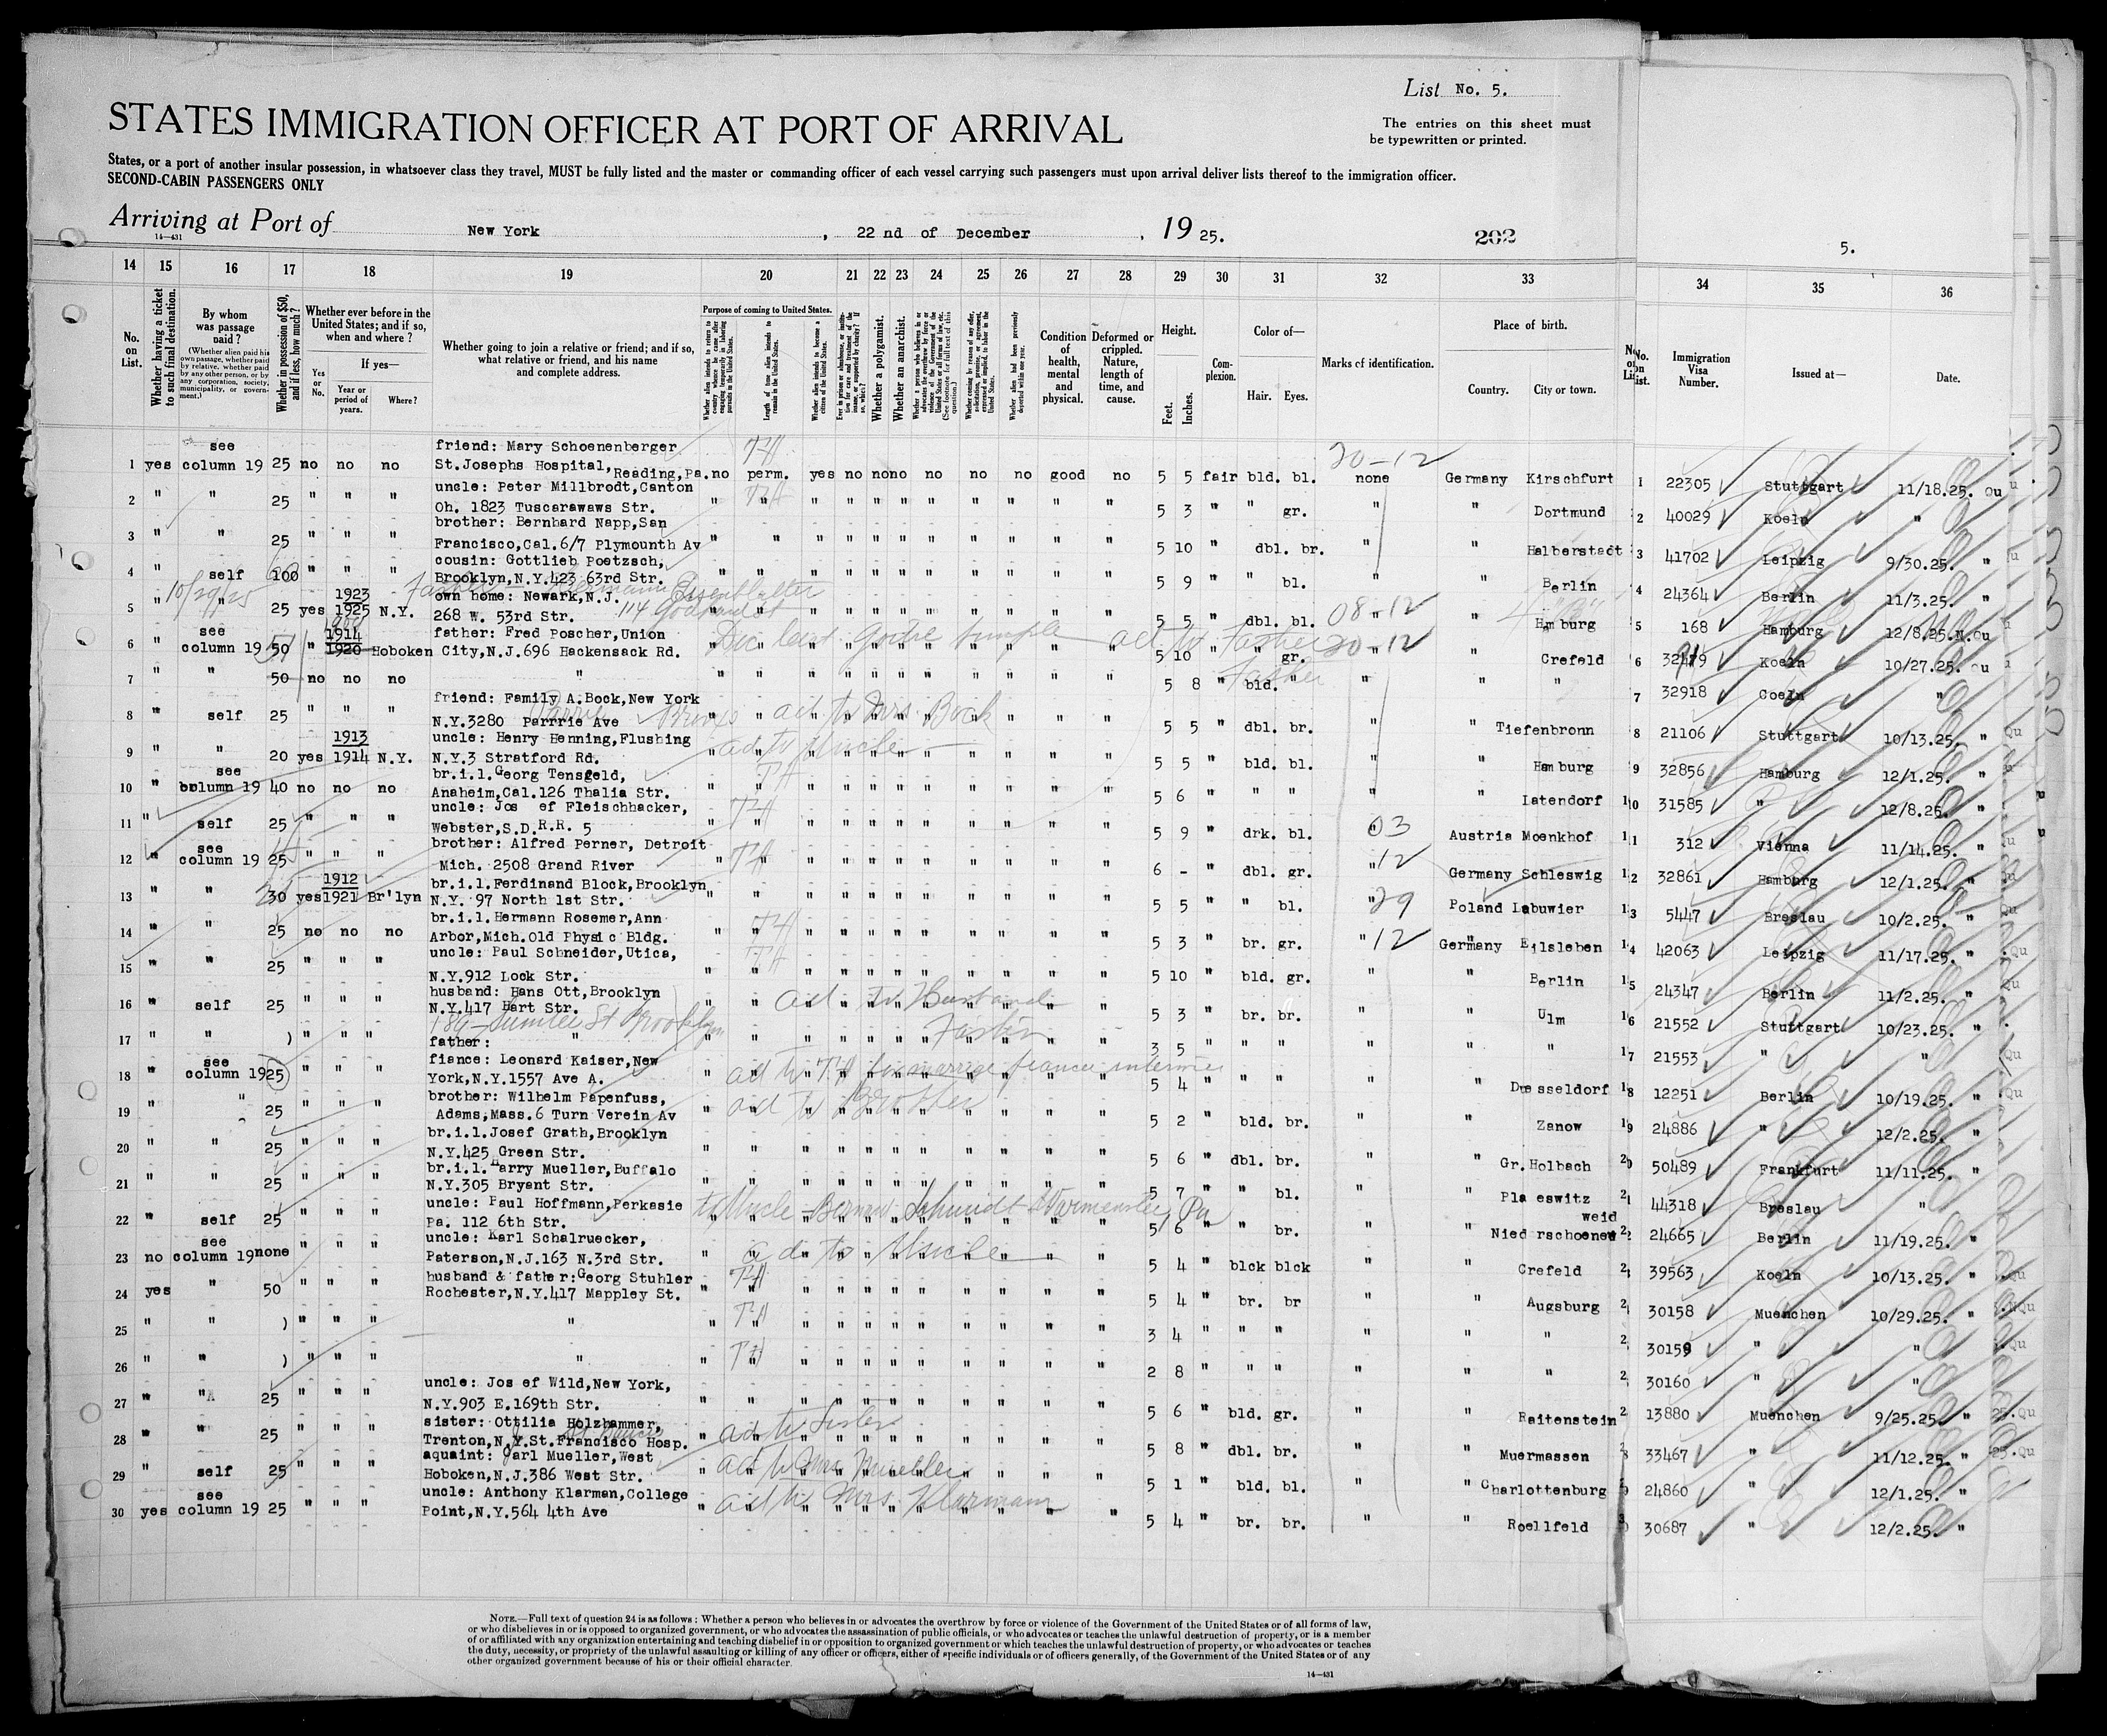 List No. 5.
STATES IMMIGRATION OFFICER AT PORT OF ARRIVAL
The entries on this sheet must
be typewritten or printed.
States, or a port of another insular possession, in whatsoever class they travel, MUST be fully listed and the master or commanding officer of each vessel carrying such passengers must upon arrival deliver lists thereof to the immigration officer.
SECOND-CABIN PASSENGERS ONLY
Arriving at Port of New York, 22 nd of December, 19 25.
14—431
202
5.
14 15 16 17 18 19 20 21 22 23 24 25 26 27 28 29 30 31 32 33 34 35 36
No. on List.
Whether having a ticket to such final destination.
By whom was passage paid?
(Whether alien paid his own passage, whether paid by relative, whether paid by any other person, or by any corporation, society, municipality, or government.)
Whether in possession of $50, and if less, how much?
Whether ever before in the United States; and if so, when and where?
If yes—
Yes or No.
Year or period of years.
Where?
Whether going to join a relative or friend; and if so, what relative or friend, and his name and complete address.
Purpose of coming to United States.
Length of time alien intends to remain in the United States.
Whether alien intends to become a citizen of the United States.
Whether a polygamist.
Whether an anarchist.
Condition of health, mental and physical.
Deformed or crippled. Nature, length of time, and cause.
Height.
Feet. Inches.
Complexion.
Color of—
Hair. Eyes.
Marks of identification.
Place of birth.
Country. City or town.
No. on List.
Immigration Visa Number.
Issued at—
Date.
see friend: Mary Schoenenberger
1 yes column 19 25 no no no St.Josephs Hospital, Reading,Pa. no perm. yes no no no no no no good no 5 5 fair bld. bl. none Germany Kirschfurt 1 22305 Stuttgart 11/18.25. Qu
20-12
uncle: Peter Millbrodt,Canton
2 " " 25 " " " Oh. 1823 Tuscarawaws Str. " " " " " " " " " " " 5 3 " " gr. " " Dortmund 2 40029 Koeln "
brother: Bernhard Napp,San
3 " " 25 " " " Francisco,Cal.6/7 Plymounth Av " " " " " " " " " " " 5 10 " dbl. br. " " Halberstadt 3 41702 Leipzig 9/30.25. "
cousin: Gottlieb Poetzsch,
4 " self 100 " " " Brooklyn,N.Y.423 63rd Str. " " " " " " " " " " " 5 9 " " bl. " " Berlin 4 24364 Berlin 11/3.25. "
10/29/25
1923 own home: Newark,N.J.
5 " " 25 yes 1925 N.Y. 268 W. 53rd Str. " " " " " " " " " " " 5 5 " dbl. bl. " " Hamburg 5 168 Hamburg 12/8.25.N.Qu
08-12
see 1914 father: Fred Poscher,Union
6 " column 19 50 " 1920 Hoboken City,N.J.696 Hackensack Rd. " " " " " " " " " " " 5 10 " " gr. " " Crefeld 6 32479 Koeln 10/27.25. Qu
ad to Father 20-12
7 " " 50 no no no " " " " " " " " " " " " 5 8 " bld. " " " " 7 32918 Coeln "
Father
friend: Family A.Bock,New York
8 " self 25 " " " N.Y.3280 Parrrie Ave " " " " " " " " " " " 5 5 " dbl. br. " " Tiefenbronn 8 21106 Stuttgart 10/13.25. "
Bronx ad to Mrs. Bock
1913 uncle: Henry Henning,Flushing
9 " " 20 yes 1914 N.Y. N.Y.3 Stratford Rd. " " " " " " " " " " " 5 5 " bld. bl. " " Hamburg 9 32856 Hamburg 12/1.25. "
ad to Uncle
see br.i.l.Georg Tensfeld,
10 " column 19 40 no no no Anaheim,Cal.126 Thalia Str. " " " " " " " " " " " 5 6 " " " " " Latendorf 10 31585 " 12/8.25. "
uncle: Jos ef Fleischhacker,
11 " self 25 " " " Webster,S.D.R.R. 5 " " " " " " " " " " " 5 9 " drk. bl. " Austria Moenkhof 11 312 Vienna 11/14.25. "
03
see brother: Alfred Perner, Detroit
12 " column 19 25 " " " Mich. 2508 Grand River " " " " " " " " " " " 6 - " dbl. gr. " Germany Schleswig 12 32861 Hamburg 12/1.25. "
12
1912 br.i.l.Ferdinand Block,Brooklyn
13 " " 30 yes 1921 Br'lyn N.Y. 97 North 1st Str. " " " " " " " " " " " 5 5 " " bl. " Poland Labuwier 13 5447 Breslau 10/2.25. "
29
br.i.l.Hermann Rosemer,Ann
14 " " 25 no no no Arbor,Mich.Old Physic Bldg. " " " " " " " " " " " 5 3 " br. gr. " Germany Eilsleben 14 42063 Leipzig 11/17.25. "
12
uncle: Paul Schneider,Utica,
15 " " 25 " " " N.Y.912 Lock Str. " " " " " " " " " " " 5 10 " bld. gr. " " Berlin 15 24347 Berlin 11/2.25. "
husband: Hans Ott,Brooklyn
16 " self 25 " " " N.Y.417 Hart Str. " " " " " " " " " " " 5 3 " br. br. " " Ulm 16 21552 Stuttgart 10/23.25. "
ad to Husband
17 " " ) " " " father: " " " " " " " " " " " " 3 5 " " " " " " 17 21553 " "
see fiance: Leonard Kaiser,New
18 " column 19 25 " " " York,N.Y.1557 Ave A. " " " " " " " " " " " 5 4 " " " " " Duesseldorf 18 12251 Berlin 10/19.25. "
brother: Wilhelm Papenfuss,
19 " " 25 " " " Adams,Mass.6 Turn Verein Av " " " " " " " " " " " 5 2 " bld. br. " " Zanow 19 24886 " 12/2.25. "
ad to Brother
br.i.l.Josef Grath,Brooklyn
20 " " 25 " " " N.Y.425 Green Str. " " " " " " " " " " " 5 6 " dbl. br. " " Gr.Holbach 20 50489 Frankfurt 11/11.25. "
br.i.l.Harry Mueller,Buffalo
21 " " 25 " " " N.Y.305 Bryant Str. " " " " " " " " " " " 5 7 " " bl. " " Pla eswitz 21 44318 Breslau "
uncle: Paul Hoffmann,Perkasie weid
22 " self 25 " " " Pa. 112 6th Str. " " " " " " " " " " " 5 6 " " br. " " Nied rschoenew 24665 Berlin 11/19.25. "
to Uncle - Schmidt Pa
see uncle: Karl Schalruecker,
23 no column 19 none " " " Paterson,N.J.163 N.3rd Str. " " " " " " " " " " " 5 4 " blck blck " " Crefeld 39563 Koeln 10/13.25. "
ad to Uncle
husband & father:Georg Stuhler
24 yes " 50 " " " Rochester,N.Y.417 Mappley St. " " " " " " " " " " " 5 4 " br. br " " Augsburg 30158 Muenchen 10/29.25. "
25 " " ) " " " " " " " " " " " " " " " 3 4 " " " " " " 30159 " "
26 " " ) " " " " " " " " " " " " " " " 2 8 " " " " " " 30160 " "
uncle: Jos ef Wild,New York,
27 " " 25 " " " N.Y.903 E.169th Str. " " " " " " " " " " " 5 6 " bld. gr. " " Raitenstein 13880 Muenchen 9/25.25. "
sister: Ottilia Holzhammer,
28 " " 25 " " " Trenton,N.Y.St.Francisco Hosp. " " " " " " " " " " " 5 8 " dbl. br. " " Muermassen 33467 " 11/12.25. "
ad to Sister
aquaint: Carl Mueller,West
29 " self 25 " " " Hoboken,N.J.386 West Str. " " " " " " " " " " " 5 1 " bld. bl. " " Charlottenburg 24860 " 12/1.25. "
ad to Mrs Mueller
see uncle: Anthony Klarman,College
30 yes column 19 25 " " " Point,N.Y.564 4th Ave " " " " " " " " " " " 5 4 " br. br. " " Roellfeld 30687 " 12/2.25. "
ad to Mrs. Klarmann
NOTE.—Full text of question 24 is as follows: Whether a person who believes in or advocates the overthrow by force or violence of the Government of the United States or of all forms of law,
or who disbelieves in or is opposed to organized government, or who advocates the assassination of public officials, or who advocates or teaches the unlawful destruction of property, or is a member
of or affiliated with any organization entertaining and teaching disbelief in or opposition to organized government or which teaches the unlawful destruction of property, or who advocates or teaches
the duty, necessity, or propriety of the unlawful assaulting or killing of any officer or officers, either of specific individuals or of officers generally, of the Government of the United States or of any
other organized government because of his or their official character.
14—431